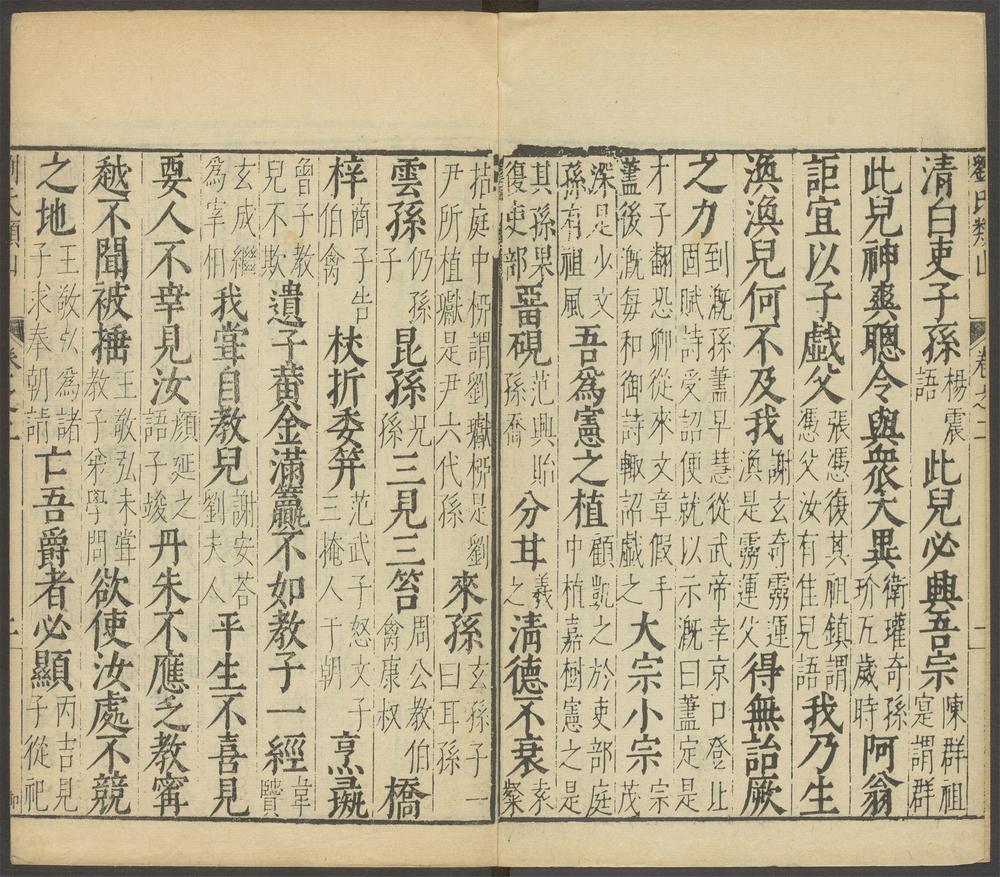 劉氏類山 卷之二 一
清白吏子孫 楊震 語 此兒必興吾宗 陳群祖 寔謂群
此兒神爽聰令與衆大異 衛瓘奇孫 玠五歲時 阿翁
詎宜以子戲父 張憑復其祖鎮謂 憑父汝有佳兒語 我乃生
渙渙兒何不及我 謝玄奇靈運 渙是靈運父 得無詒厥
之力 到溉孫藎早慧從武帝幸京口登北 固賦詩受詔便就以示溉曰藎定是
才子翻恐卿從來文章假手 藎後溉每和御詩輒詔戲之 大宗小宗 宗 茂
深是少文 孫有祖風 吾爲憲之植 顧凱之於吏部庭 中植嘉樹憲之是
其孫果 復吏部 畱硯 范興貽 孫喬 分甘 羲 之 清德不衰 索 粲
括庭中柳謂劉瓛柳是劉 尹所植瓛是尹六代孫 來孫 玄孫子一 曰耳孫
雲孫 仍孫 子 昆孫 兄 孫 三見三笞 周公教伯 禽康叔 橋
梓 商子告 伯禽 杖折委笄 范武子怒文子 三掩人于朝 烹彘
曾子教 兒不欺 遺子黄金滿籯不如教子一經 韋 賢
玄成繼 爲宰相 我嘗自教兒 謝安荅 劉夫人 平生不喜見
要人不幸見汝 顔延之 語子竣 丹朱不應乏教寗
越不聞被捶 王敬弘未嘗 教子弟學問 欲使汝處不競
之地 王敬弘爲諸 子求奉朝請 亡吾爵者必顯 丙吉見 子從祀